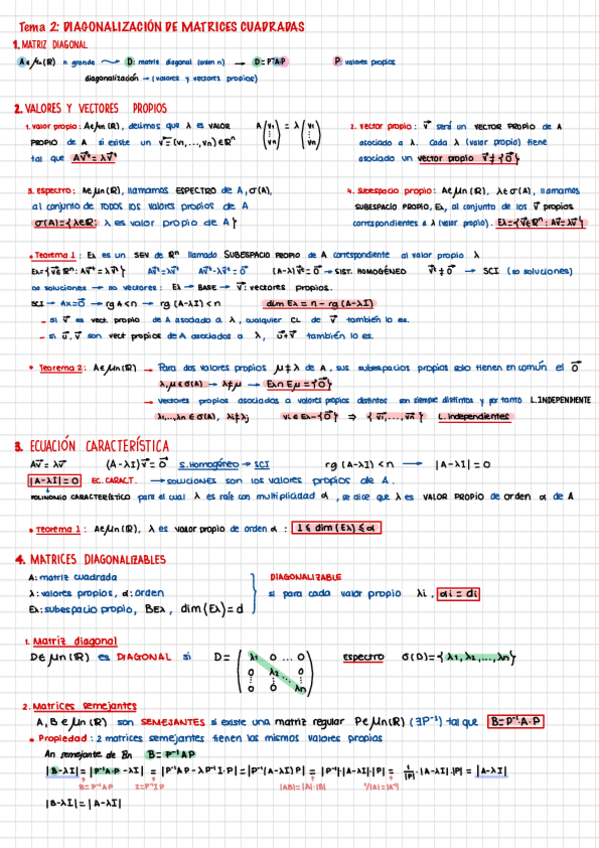 Tema 2: DIAGONALIZACIÓN DE MATRICES CUADRADAS
1. MATRIZ DIAGONAL
A ∈ μn(ℝ) n grande → D: matriz diagonal (orden n) → D=P⁻¹AP P: valores propios
diagonalización → (valores y vectores propios)
2. VALORES Y VECTORES PROPIOS
1. Valor propio: A∈μn(ℝ), decimos que λ es VALOR
PROPIO DE A si existe un v⃗=(v1,...,vn)∈ℝⁿ
tal que Av⃗=λv⃗
A (v1 ⋮ vn) = λ (v1 ⋮ vn)
2. Vector propio: v⃗ será un VECTOR PROPIO DE A
asociado a λ. Cada λ (valor propio) tiene
asociado un vector propio v⃗≠{0⃗}
3. Espectro: A∈μn(ℝ), llamamos ESPECTRO DE A, σ(A),
al conjunto de TODOS los valores propios de A
σ(A)={λ∈ℝ: λ es valor propio de A}
4. Subespacio propio: A∈μn(ℝ), λ∈σ(A), llamamos
SUBESPACIO PROPIO, Eλ, al conjunto de los v⃗ propios
correspondientes a λ (valor propio). Eλ={v⃗∈ℝⁿ: Av⃗=λv⃗}
• Teorema 1: Eλ es un SEV de ℝⁿ llamado SUBESPACIO PROPIO de A correspondiente al valor propio λ
Eλ={v⃗∈ℝⁿ: Av⃗=λv⃗} Av⃗=λv⃗ Av⃗-λv⃗=0⃗ (A-λI)v⃗=0⃗ → SIST. HOMOGÉNEO v⃗≠0⃗ → SCI (∞ soluciones)
∞ soluciones → ∞ vectores: Eλ → BASE → v⃗: vectores propios.
SCI → Ax⃗=0⃗ → rgA<n → rg(A-λI)<n dim Eλ = n - rg(A-λI)
- si v⃗ es vect. propio de A asociado a λ, cualquier CL de v⃗ también lo es.
- si u⃗, v⃗ son vect propios de A asociados a λ, u⃗+v⃗ también lo es.
• Teorema 2: A∈μn(ℝ) → Para dos valores propios μ≠λ de A, sus subespacios propios solo tienen en común el 0⃗
λ,μ∈σ(A) → λ≠μ → Eλ∩Eμ={0⃗}
→ vectores propios asociados a valores propios distintos son siempre distintos y por tanto L.INDEPENDIENTE
λ1,...,λn∈σ(A), λi≠λj vi∈Eλi-{0⃗} ⇒ {v⃗1,...,v⃗n} L. Independientes
3. ECUACIÓN CARACTERÍSTICA
Av⃗=λv⃗ (A-λI)v⃗=0⃗ S.Homogéneo → SCI rg(A-λI)<n → |A-λI|=0
|A-λI|=0 EC. CARACT. → soluciones son los valores propios de A.
POLINOMIO CARACTERÍSTICO para el cual λ es raíz con multiplicidad α, se dice que λ es VALOR PROPIO de orden α de A
• Teorema 1: A∈μn(ℝ), λ es valor propio de orden α: 1≤dim(Eλ)≤α
4. MATRICES DIAGONALIZABLES
A: matriz cuadrada
λ: valores propios, α: orden
Eλ: subespacio propio, BEλ, dim(Eλ)=d
DIAGONALIZABLE
si para cada valor propio λi, αi=di
1. Matriz diagonal
D∈μn(ℝ) es DIAGONAL si D= (λ1 0 ... 0
0 λ2 ... 0
⋮ ⋮ ⋱ ⋮
0 0 λn) espectro σ(D)={λ1,λ2,...,λn}
2. Matrices semejantes
A,B∈μn(ℝ) son SEMEJANTES si existe una matriz regular P∈μn(ℝ) (∃P⁻¹) tal que B=P⁻¹·A·P
• Propiedad: 2 matrices semejantes tienen los mismos valores propios
An semejante de Bn B=P⁻¹AP
|B-λI|=|P⁻¹A·P-λI|=|P⁻¹AP-λP⁻¹I·P|=|P⁻¹(A-λI)P|=|P⁻¹|·|A-λI|·|P|=1/|P|·|A-λI|·|P|=|A-λI|
B=P⁻¹AP I=P⁻¹IP |AB|=|A|·|B| 1/|A|=|A⁻¹|
|B-λI|=|A-λI|